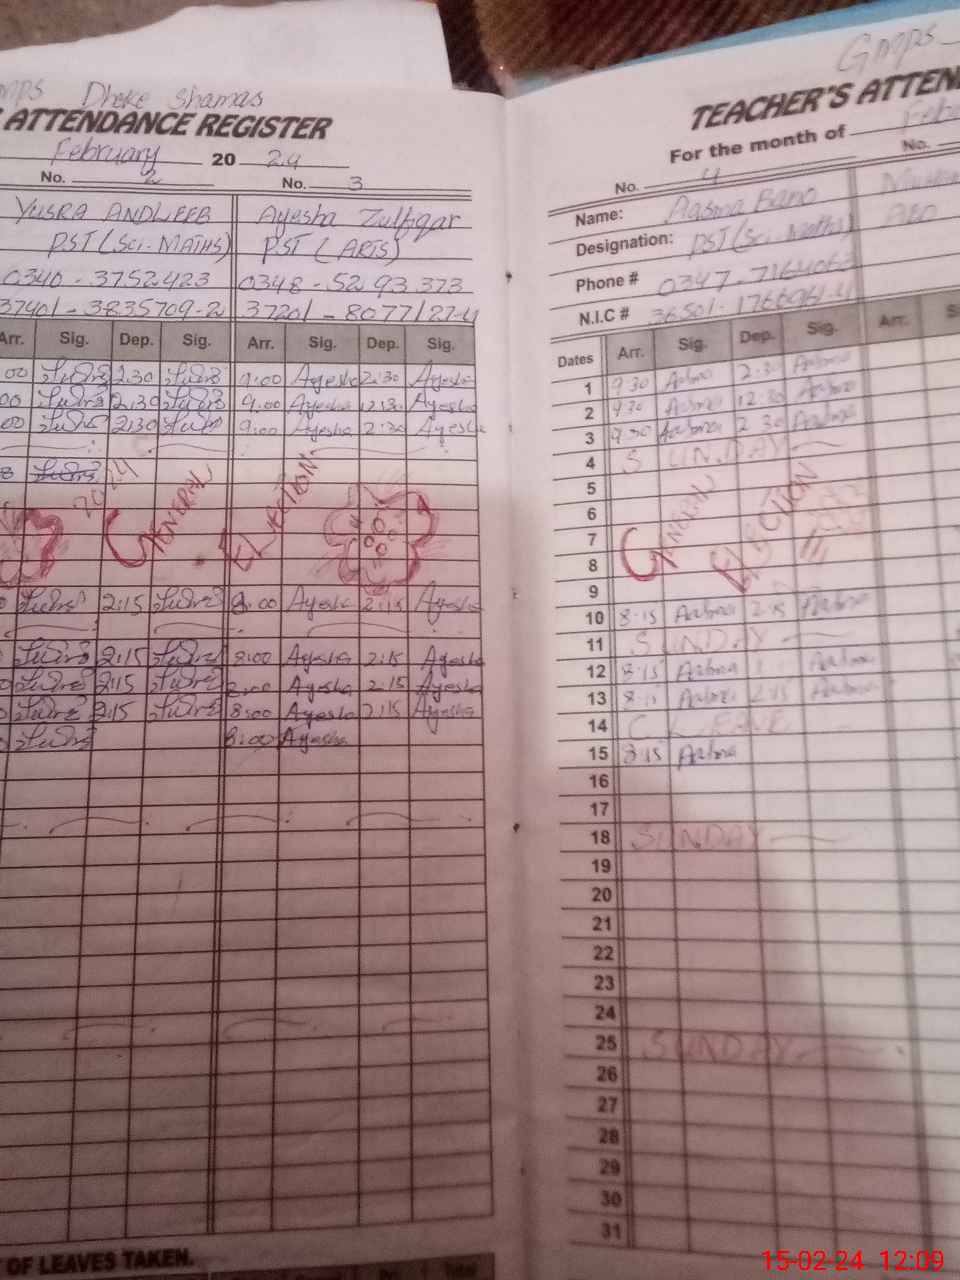 Dheke Shamas
ATTENDANCE REGISTER
February 20 24
No. 2 No. 3
YUSRA ANDLEEB Ayesha Zulfiqar
PST (Sci-MATHS) PST (ARTS)
0340-3752423 0348-5293373
37401-3835709-2 37201-8077127-4
Arr. Sig. Dep. Sig. Arr. Sig. Dep. Sig.
00 2:30 9:00 Ayesha 2:30 Ayesha
00 2:30 9:00 Ayesha 12:30 Ayesha
00 2:30 9:00 Ayesha 2:30 Ayesha
8
2024 GENERAL ELECTION
2:15 8:00 Ayesha 2:15 Ayesha
2:15 8:00 Ayesha 2:15 Ayesha
2:15 8:00 Ayesha 2:15 Ayesha
2:15 8:00 Ayesha 2:15 Ayesha
8:00 Ayesha
OF LEAVES TAKEN.
GMPS
TEACHER'S ATTEN
For the month of Feb
No. 4 No.
Name: Aasma Bano
Designation: PST (Sci. Maths)
Phone # 0347-7164063
N.I.C # 36501-1766961-4
Dates Arr. Sig. Dep. Sig. Arr. S
1 9:30 Aasma 2:30 Aasma
2 9:30 Aasma 12:30 Aasma
3 9:30 Aasma 2:30 Aasma
4 SUNDAY
5
6
7 GENERAL ELECTION
8
9
10 8:15 Aasma 2:15 Aasma
11 SUNDAY
12 8:15 Aasma Aasma
13 8:15 Aasma 2:15 Aasma
14 C. LEAVE
15 8:15 Aasma
16
17
18 SUNDAY
19
20
21
22
23
24
25 SUNDAY
26
27
28
29
30
31
15-02-24 12:09